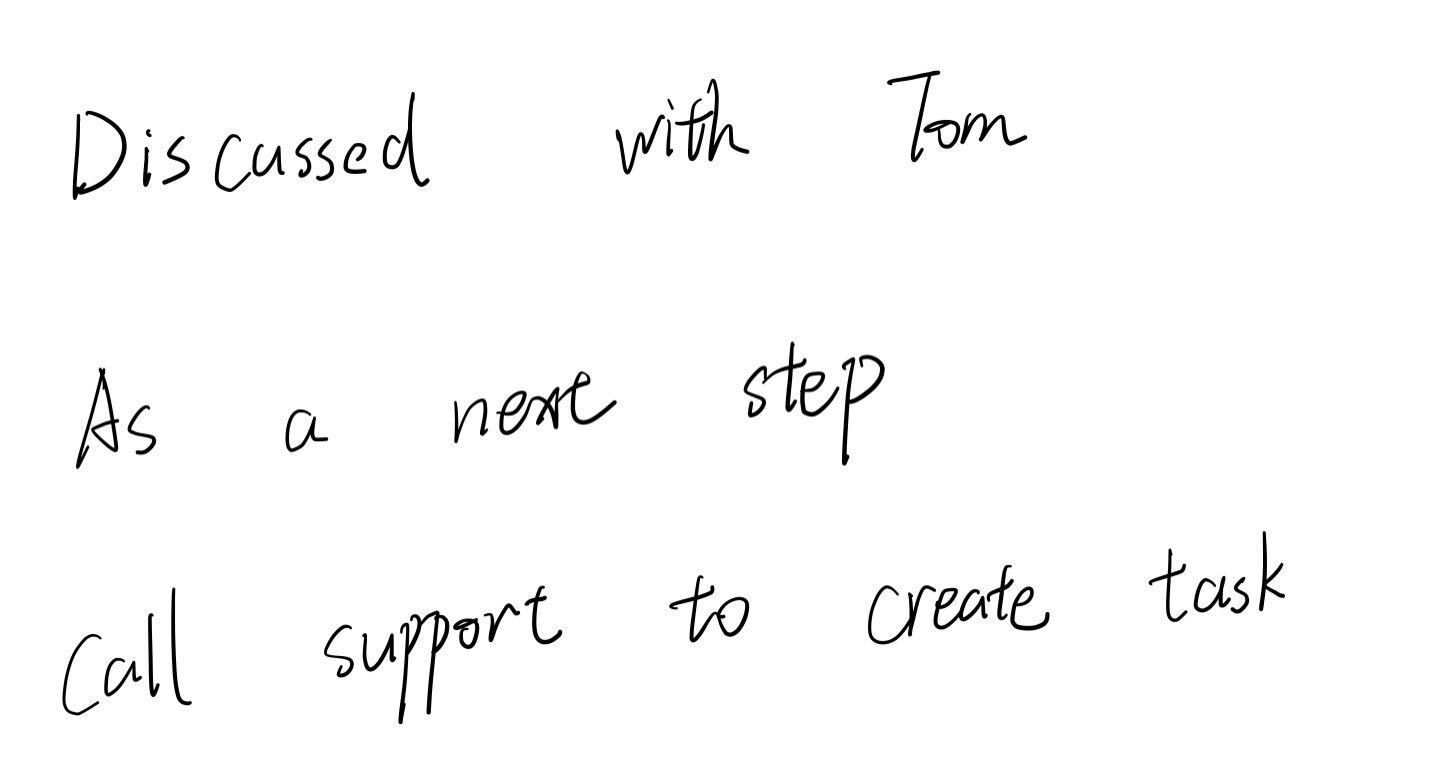 Discussed with Tom
As a next step
Call support to create task